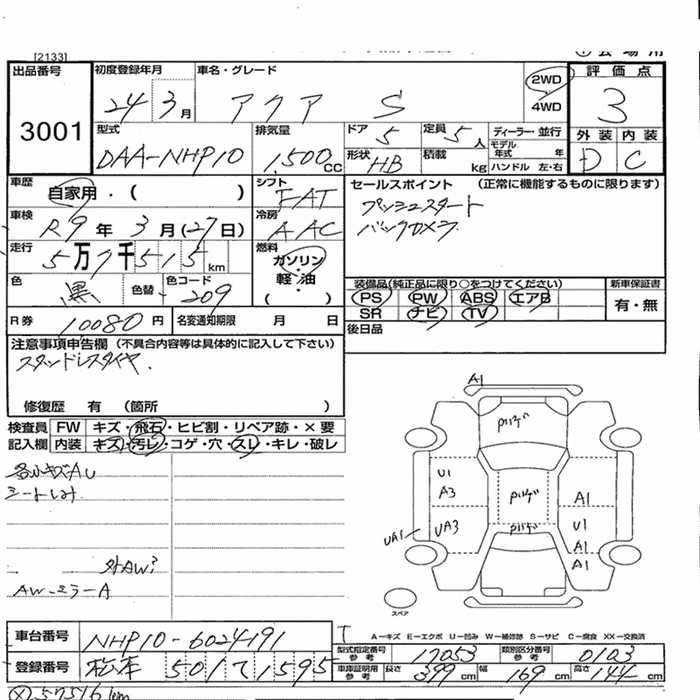 [2133]
出品番号 3001
初度登録年月 24 3月
車名・グレード アクア S
2WD
4WD
評価点 3
外装 D 内装 C
型式 DAA-NHP10
排気量 1,500 CC
ドア 5
定員 5人
形状 HB
積載 kg
ディーラー・並行
モデル年式 年
ハンドル 左・右
車歴 自家用・( )
シフト FAT
車検 R9年 3月(27日)
冷房 AAC
走行 5万7千515km
燃料 ガソリン・軽油・( )
色 黒 色替 色コード 209
R券 10080円
名変通知期限 月 日
セールスポイント (正常に機能するものに限ります)
プッシュスタート
バックカメラ
装備品(純正品に限り○をつけてください)
PS PW ABS エアB
SR ナビ TV
新車保証書
有・無
後日品
注意事項申告欄 (不具合内容等は具体的に記入して下さい)
スタッドレスタイヤ.
修復歴 有 (箇所 )
検査員記入欄
FW キズ・飛石・ヒビ割・リペア跡・×要
内装 キズ・汚レ・コゲ・穴・スレ・キレ・破レ
各小キズAU
シートしみ
外AW?
AW-ミラーA
A1
U1
A3
UA1
UA3
A1
U1
A1
A1
スペア
A-キズ E-エクボ U-凹み W-補修跡 S-サビ C-腐食 XX-交換済
車台番号 NHP10-6024191
登録番号 松本 501 71595
型式指定番号 参考 17053
類別区分番号 参考 0103
車庫証明用 参考 長さ 399cm 幅 169cm 高さ 144cm